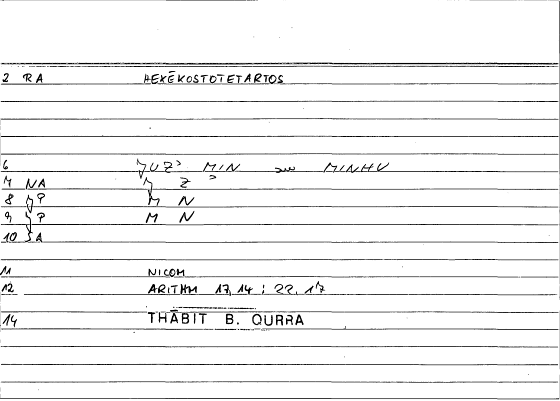 2 RA HEXĒKOSTOTETARTOS
6 ǦUZʾ MIN MINHU
7 NA Ǧ Z ʾ
8 P M N
9 P M N
10 SA
11 NICOM
12 ARITHM 17,14 ; 22, 17
14 THĀBIT B. QURRA